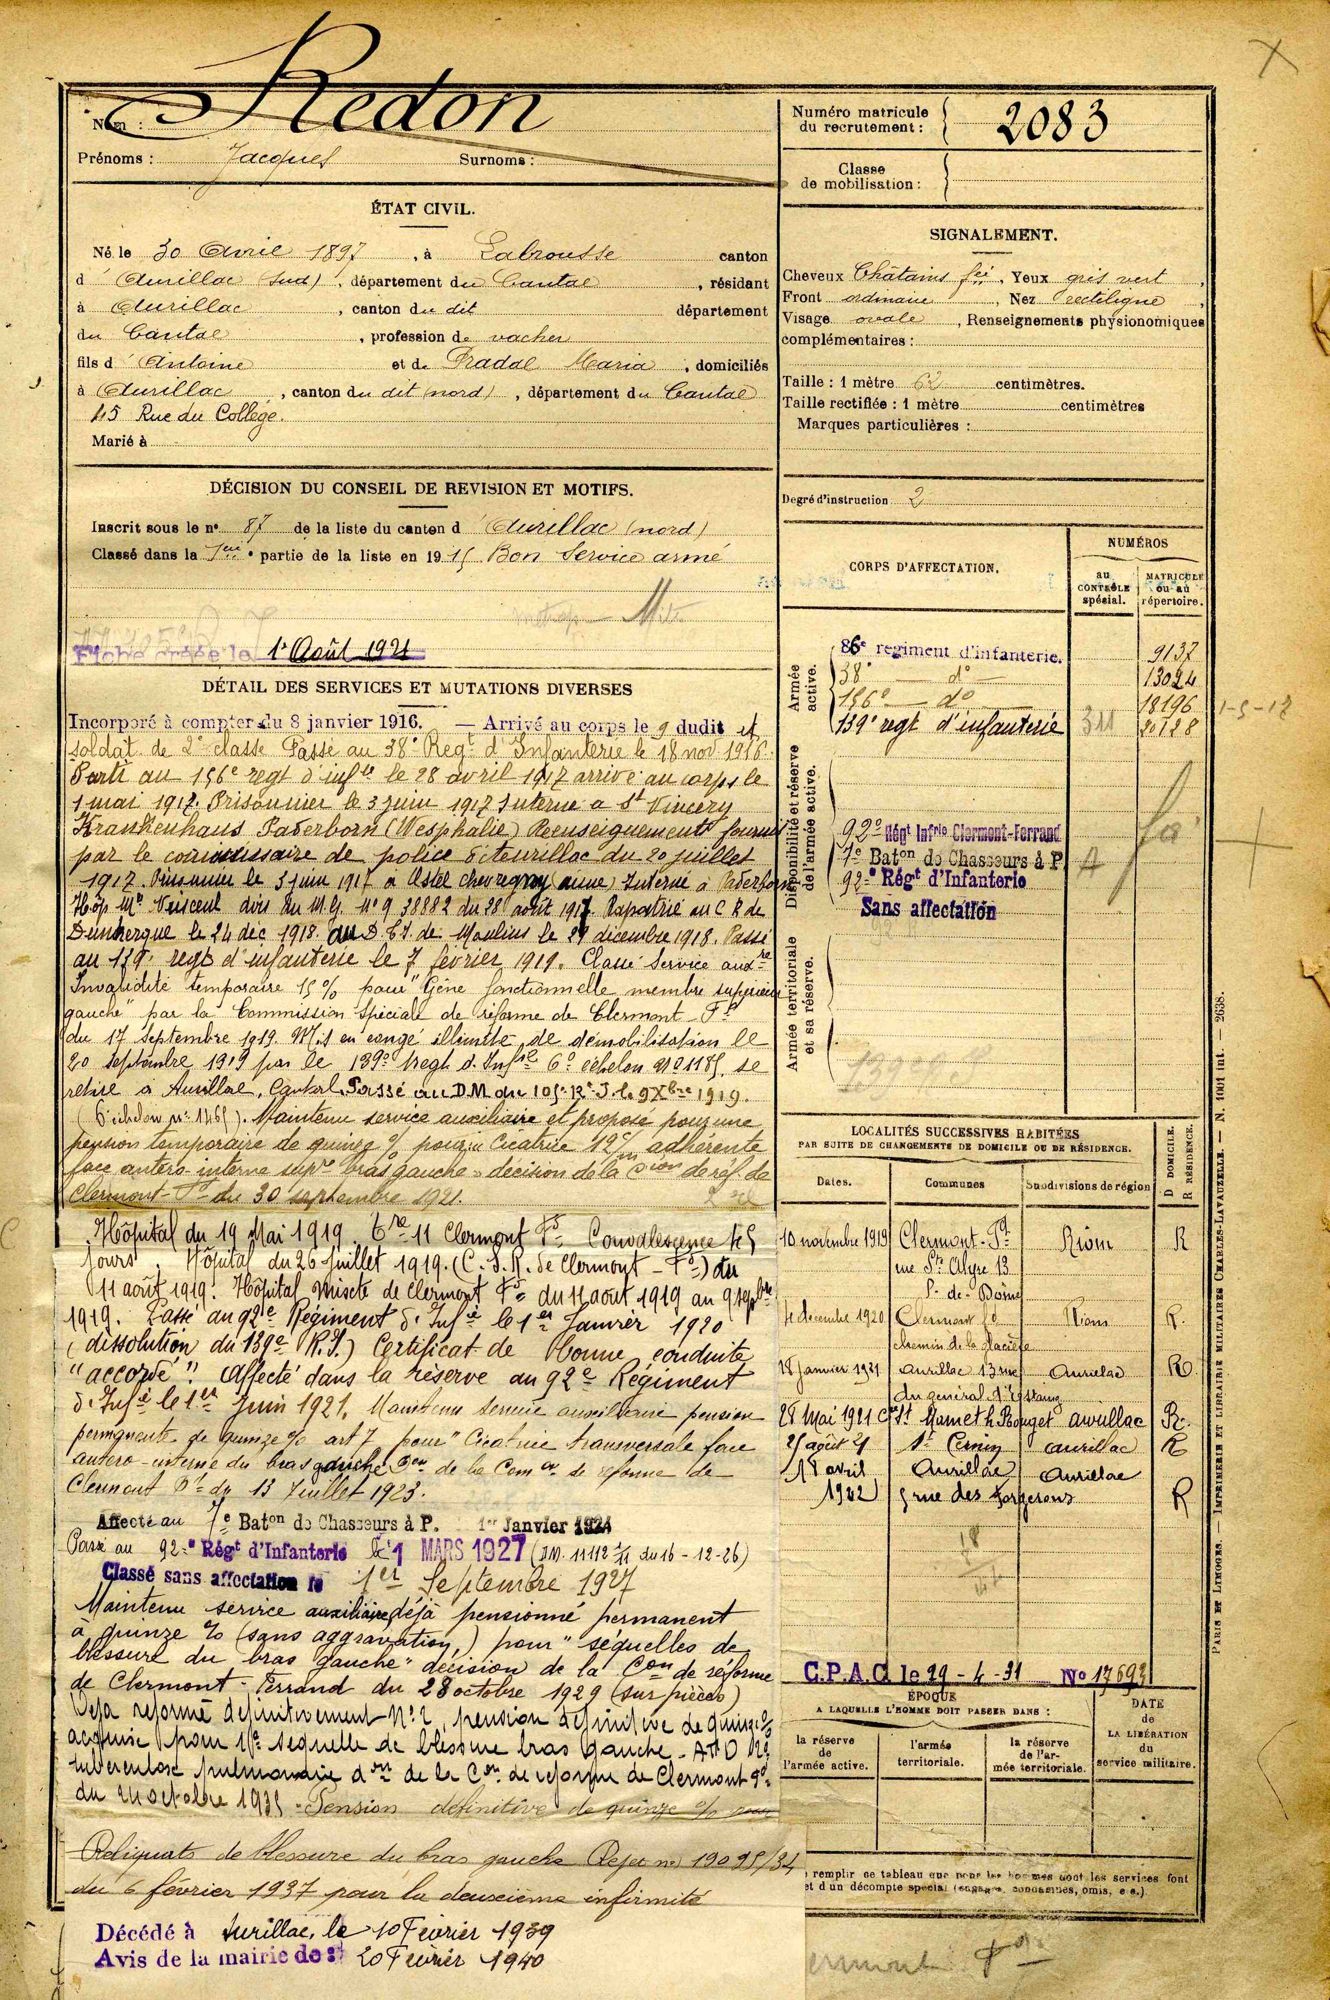 Nom : Redon
Prénoms : Jacques Surnoms :
Numéro matricule du recrutement : 2083
Classe de mobilisation :
ÉTAT CIVIL.
Né le 30 Avril 1897, à Labrousse canton
d'Aurillac (sud), département du Cantal, résidant
à Aurillac, canton du dit département
du Cantal, profession de vacher
fils d'Antoine et de Pradal Maria, domiciliés
à Aurillac, canton du dit (nord), département du Cantal
45 Rue du Collège.
Marié à
SIGNALEMENT.
Cheveux Châtains fcé. Yeux gris vert,
Front ordinaire, Nez rectiligne,
Visage ovale, Renseignements physionomiques
complémentaires :
Taille : 1 mètre 62 centimètres.
Taille rectifiée : 1 mètre centimètres
Marques particulières :
Degré d'instruction 2
DÉCISION DU CONSEIL DE REVISION ET MOTIFS.
Inscrit sous le n° 87 de la liste du canton d'Aurillac (nord)
Classé dans la 1ere partie de la liste en 1915 Bon Service armé
Fiche créée le 1er Août 1921
DÉTAIL DES SERVICES ET MUTATIONS DIVERSES
Incorporé à compter du 8 janvier 1916. — Arrivé au corps le 9 dudit et
soldat de 2e classe Passé au 38e Regt d'Infanterie le 18 nov 1916.
Parti au 156e regt d'infie le 28 avril 1917 arrivé au corps le
1 mai 1917. Prisonnier le 3 juin 1917 Interné à St Vincenz
Krankenhaus Paderborn (Wesphalie) Renseignements fournis
par le commissaire de police d'Aurillac du 20 juillet
1917. Prisonnier le 5 juin 1917 à Ostel Chevregny (aisne) Interné à Paderborn
Hôp Mre Vinscent avis du M.G. N° 9 38882 du 28 août 1917. Rapatrié au C R de
Dunkerque le 24 dec 1918. au D.T.I. de Moulins le 29 décembre 1918. Passé
au 139e regt d'infanterie le 7 février 1919. Classé Service auxre
Invalidité temporaire 15 % pour "Gêne fonctionnelle membre supérieur
gauche" par la Commission spéciale de réforme de Clermont-Fd
du 17 septembre 1919. Mis en congé illimité de démobilisation le
20 septembre 1919 par le 139e regt d'Infie 6e échelon N° 1185, se
retire à Aurillac, Cantal. Passé au D.M. du 105e R.I. le 9 Xbre 1919.
(6e échelon n° 1465). Maintenu service auxiliaire et proposé pour une
pension temporaire de quinze % pour "Cicatrice 12 c/m adhérente
face antero-interne supre bras gauche" décision de la Cion de réf. de
Clermont-Fd du 30 septembre 1921.
Hôpital du 19 Mai 1919. Cre 11 Clermont Fd Convalescence 45
jours. Hôpital du 26 juillet 1919. (C.S.R. de Clermont-Fd) du
11 août 1919. Hôpital mixte de Clermont Fd du 11 aout 1919 au 9 septbre
1919. Passé au 92e Régiment d'Infie le 1er Janvier 1920
(dissolution du 139e R.I.) Certificat de bonne conduite
"accordé". Affecté dans la réserve au 92e Régiment
d'Infie le 1er Juin 1921. Maintenu service auxiliaire pension
permanente de quinze % art 7 pour "Cicatrice transversale face
antero-interne du bras gauche" Don de la Com on de réforme de
Clermont Fd du 13 Juillet 1923.
Affecté au 7e Baton de Chasseurs à P. 1er Janvier 1924
Passé au 92e Régt d'Infanterie le 1 MARS 1927 (DM. 11112 1/11 du 16-12-26)
Classé sans affectation le 1er Septembre 1927
Maintenu service auxiliaire, déjà pensionné permanent
à quinze % (sans aggravation,) pour "séquelles de
blessure du bras gauche" décision de la Con de réforme
de Clermont-Ferrand du 28 octobre 1929 (sur pièces)
Deja reformé définitivement N° 2, pension définitive de quinze %
acquise pour 1° sequelle de blessure bras gauche. - A II D N° 2
tuberculose pulmonaire don de la Con de reforme de Clermont Fd
du 24 octobre 1935 - Pension définitive de quinze % pour
Reliquats de blessure du bras gauche Rejet n° 19095/34
du 6 février 1937 pour la deuxième infirmité
Décédé à Aurillac, le 10 Février 1939
Avis de la mairie de : dt 20 Février 1940
CORPS D'AFFECTATION.
NUMÉROS
au CONTRÔLE spécial.
MATRICULE ou au répertoire.
Armée active.
86e regiment d'infanterie. 9137
38e — do — 13024
156e — do 18196
139e regt d'infanterie 311 20128
1-5-17
Disponibilité et réserve de l'armée active.
92e Régt Infrie Clermont-Ferrand
7e Baton de Chasseurs à P. A
92e Régt d'Infanterie
Sans affectation
Armée territoriale et sa réserve.
LOCALITÉS SUCCESSIVES HABITÉES
PAR SUITE DE CHANGEMENTS DE DOMICILE OU DE RÉSIDENCE.
D DOMICILE. R RÉSIDENCE.
Dates. Communes Subdivisions de région
10 novembre 1919 Clermont-Fd Riom R
rue Ste Alyre 13
P.-de-Dôme
4 decembre 1920 Clermont Fd Riom R.
chemin de la glacière
18 janvier 1921 Aurillac 13 rue Aurillac R
du général Destaing
28 Mai 1921 St Mamet le Rouget Aurillac R.
25 août 21 St Cernin Aurillac R
18 avril Aurillac Aurillac
1922 5 rue des Forgerons R
C.P.A.C. le 29-4-31 No 17693
ÉPOQUE
A LAQUELLE L'HOMME DOIT PASSER DANS :
DATE de LA LIBÉRATION du service militaire.
la réserve de l'armée active.
l'armée territoriale.
la réserve de l'armée territoriale.
remplir ce tableau que pour les hommes dont les services font
et d'un décompte spécial (engagés, condamnés, omis, etc.).
PARIS ET LIMOGES. IMPRIMERIE ET LIBRAIRIE MILITAIRES CHARLES-LAVAUZELLE. — N. 1001 int. — 2638.